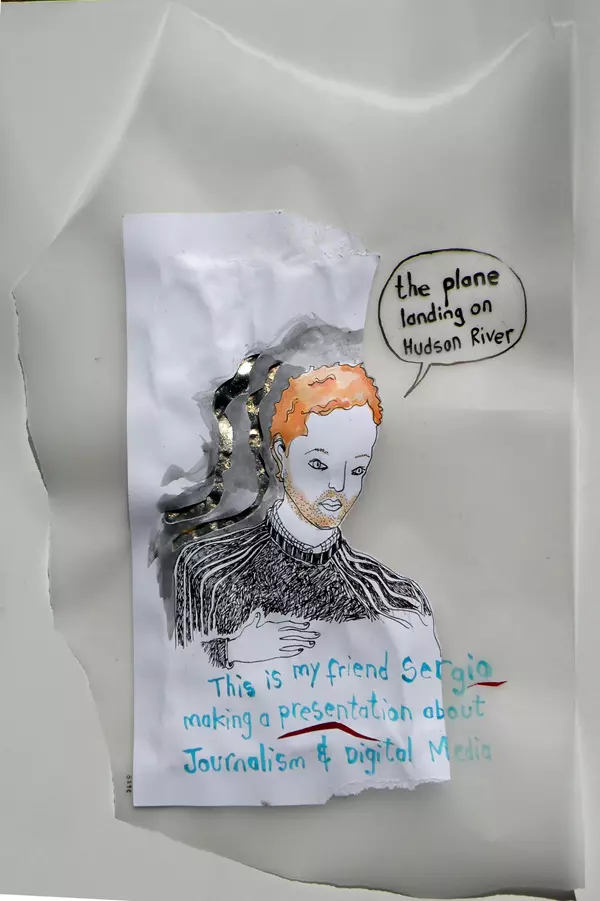 the plane
landing on
Hudson River
This is my friend Sergio
making a presentation about
Journalism & Digital Media